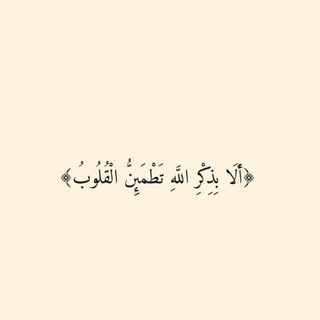 ﴿أَلَا بِذِكْرِ اللَّهِ تَطْمَئِنُّ الْقُلُوبُ﴾